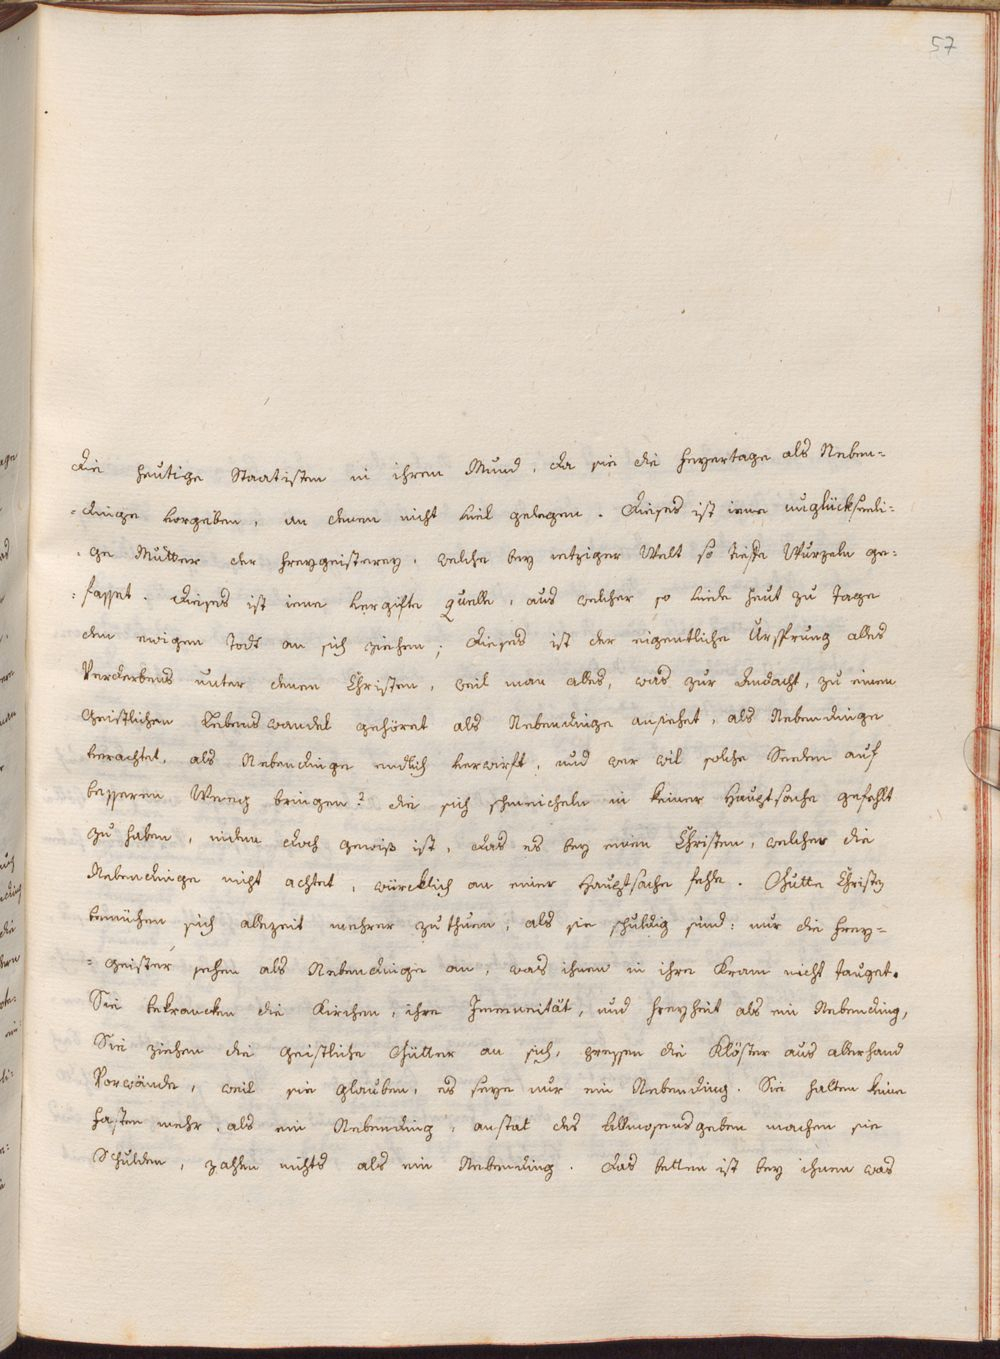 57
die heutige Staatisten in ihrem Mund, da sie die Feyertage als Neben=
=dinge vorgeben, an denen nicht viel gelegen. Dieses ist iene unglückseeli=
=ge Mutter der Freygeisterey, welche bey ietziger Welt so tieffe Wurzeln ge=
=fasset. Dieses ist iene vergifte Quelle, aus welcher so viele heut zu Tage
den ewigen Todt an sich ziehen; dieses ist der eigentliche Ursprung alles
Verderbens unter denen Christen, weil man alles, was zur Andacht, zu einem
geistlichen Lebenswandel gehöret als Nebendinge ansiehet, als Nebendinge
verachtet, als Nebendinge endlich verwirft, und wer wil solche Seelen auf
besseren Weeg bringen? die sich schmeicheln in keiner Hauptsache gefehlt
zu haben, indem doch gewiß ist, das es bey einen Christen, welcher die
Nebendinge nicht achtet, würcklich an einer Hauptsache fehle. Gutte Christen
bemühen sich allezeit mehrer zu thuen, als sie schuldig sind: nur die Frey=
=geister sehen als Nebendinge an, was ihnen in ihre Kram nicht tauget.
Sie bekrancken die Kirchen, ihre Immunität, und Freyheit als ein Nebending,
Sie ziehen die geistliche Gütter an sich, pressen die Klöster aus allerhand
Vorwände, weil sie glauben, es seye nur ein Nebending. Sie halten keine
Fasten mehr, als ein Nebending, anstat des Allmosens geben machen sie
Schulden, zahlen nichts als ein Nebending. Das betten ist bey ihnen was